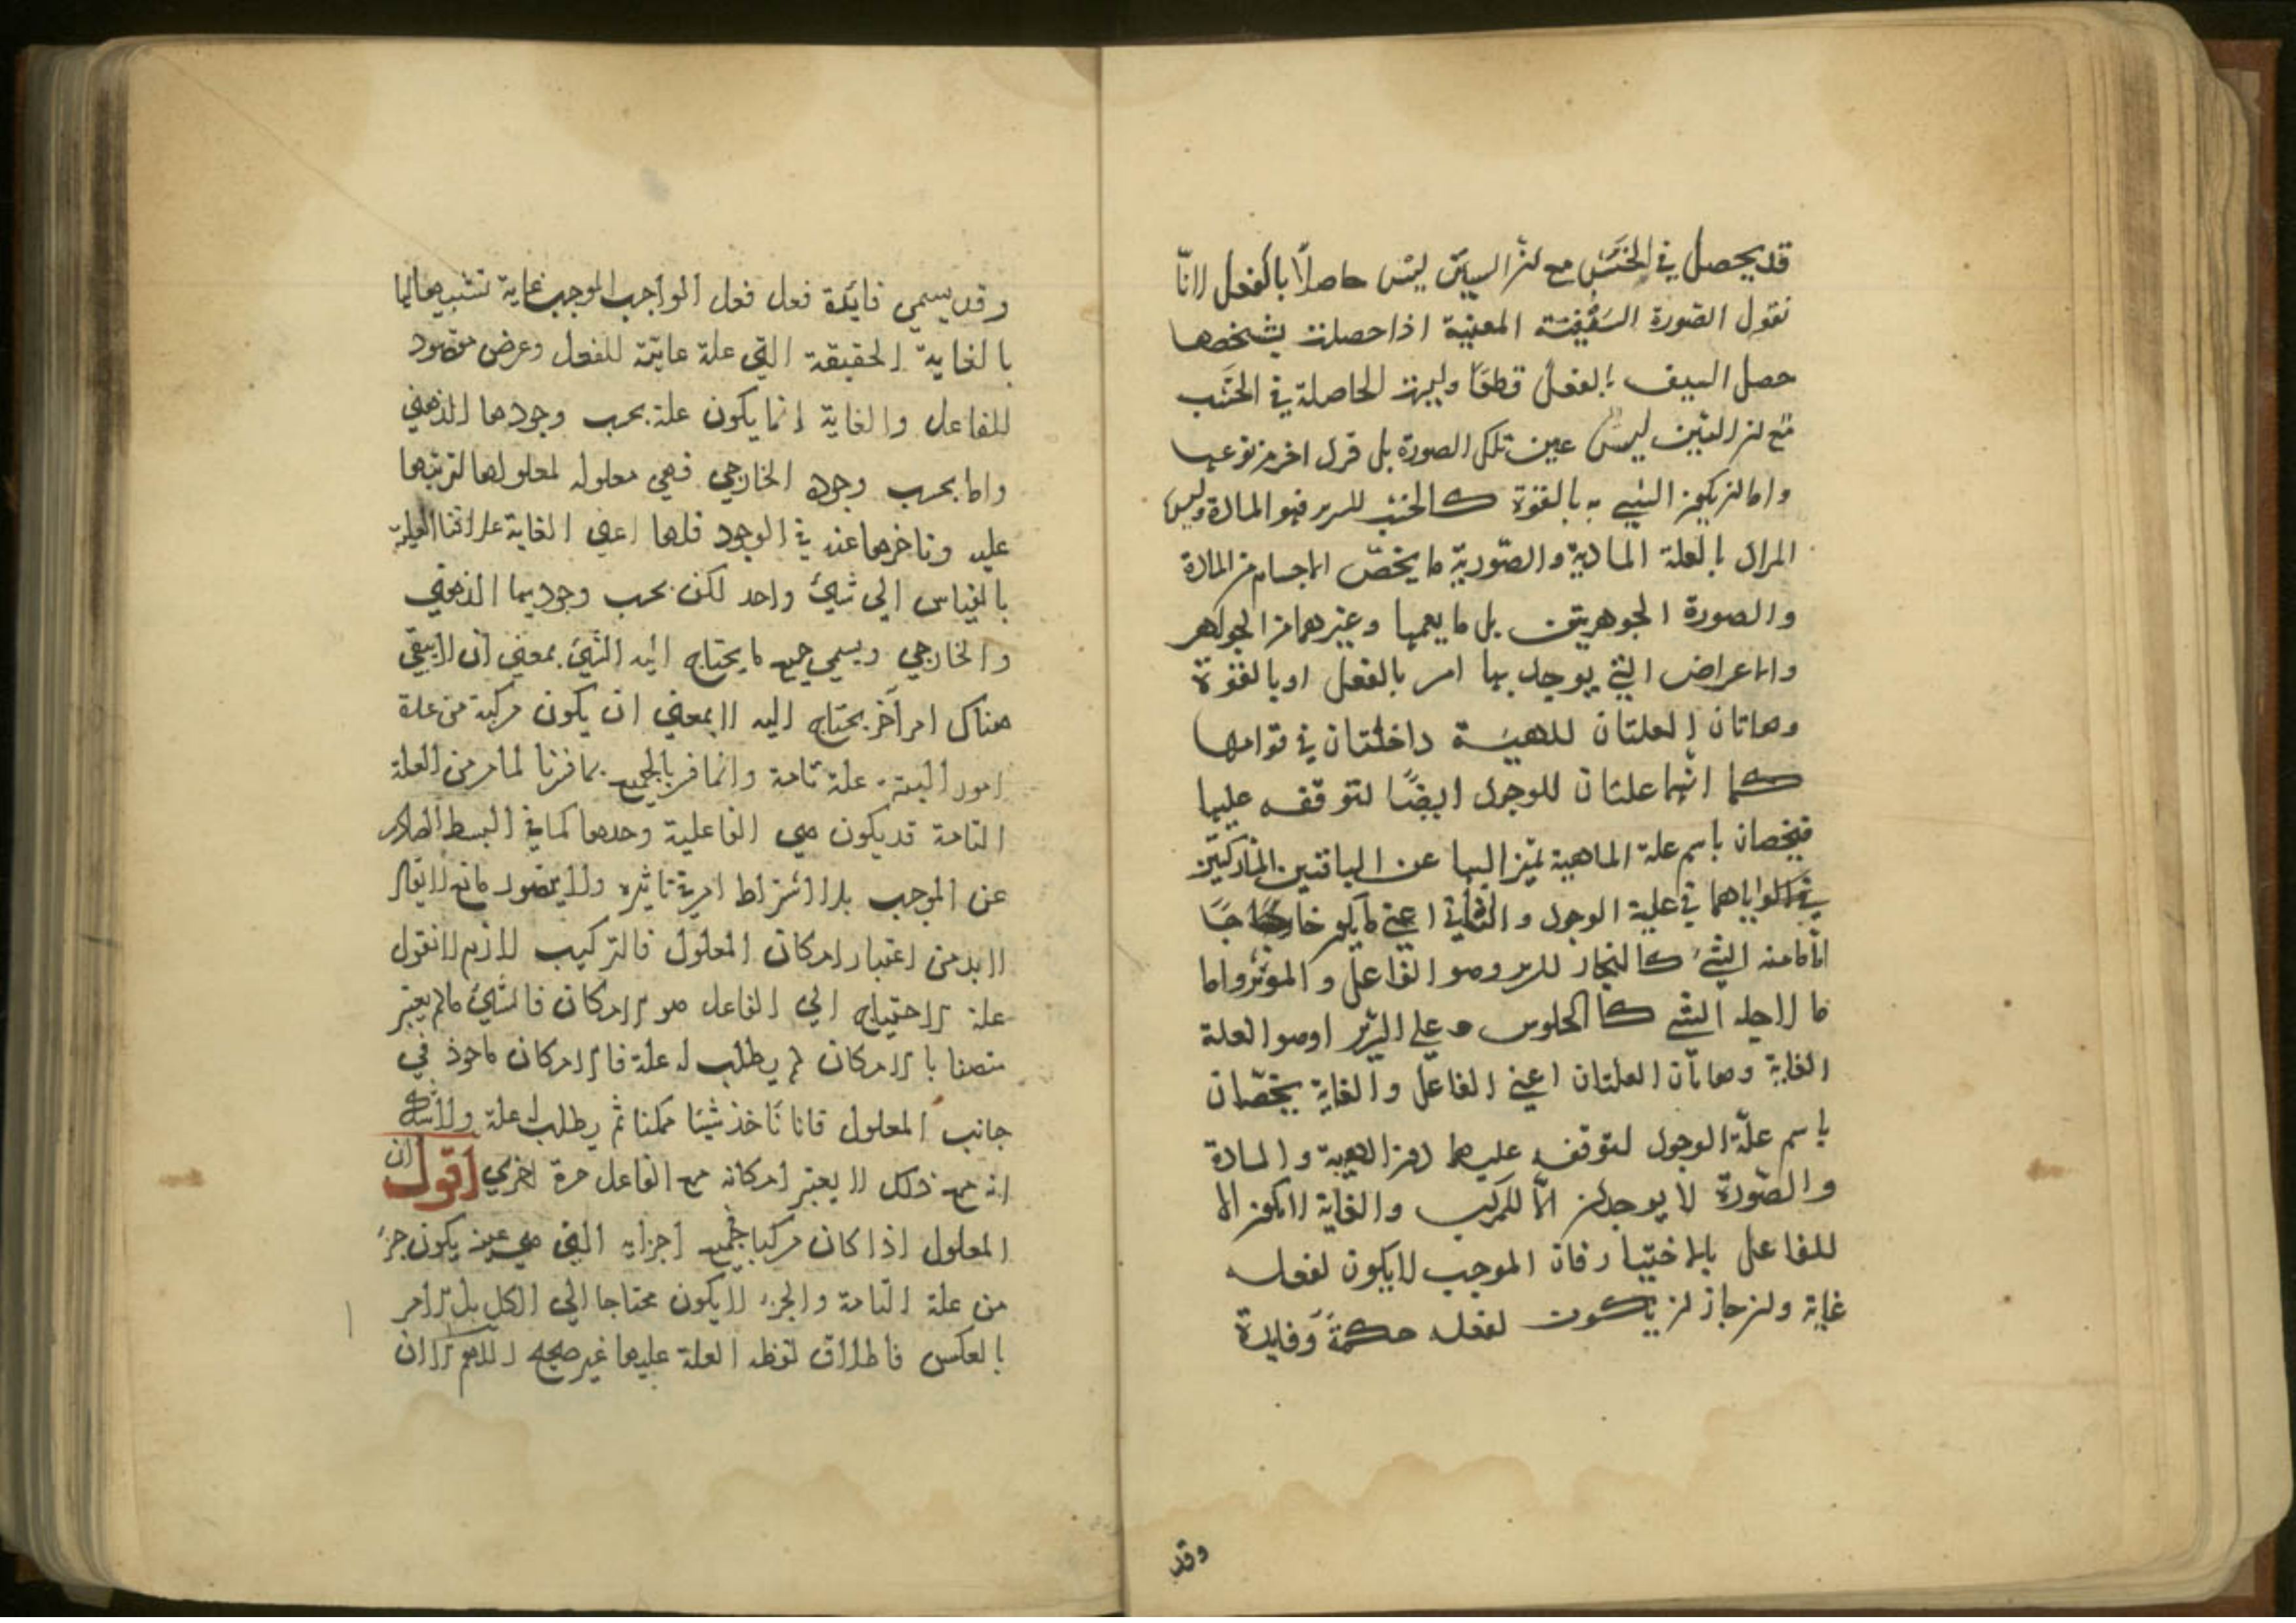 قد يحصل في الخشب مع ان السيف ليس حاصلا بالفعل لانا
نقول الصورة السيفية المعينة اذا حصلت بشخصها
حصل السيف بالفعل قطعا وليست الحاصلة في الخشب
مع ان السيف ليس عين تلك الصورة بل فرد اخر من نوعها
واما ان يكون الشيء به بالقوة كالخشب للسرير فهو المادة وليس
المراد بالعلة المادية والصورية ما يخص الاجسام من المادة
والصورة الجوهريتين بل ما يعمها وغيرهما من الجواهر
والاعراض التي يوجد بها امر بالفعل او بالقوة
وهاتان العلتان للمهية داخلتان في قوامها
كما انهما علتان للوجود ايضا لتوقفه عليها
فيخصان باسم علة الماهية تميزا لهما عن الباقتين المشاركتين
اياهما في علية الوجود والثاني اعني ما يكون خارجا
اما ما منه الشيء كالنجار للسرير وهو الفاعل والموثر واما
ما لاجله الشي كالجلوس على السرير وهو العلة
الغاية وهاتان العلتان اعني الفاعل والغاية يخصان
باسم علة الوجود لتوقفه عليهما دون المهية والمادة
والصورة لا يوجدان الا للمركب والغاية لا يكون الا
للفاعل بالاختيار فان الموجب لا يكون لفعله
غاية وان جاز ان يكون لفعله حكمة وفايدة
وقد
وقد يسمي فايدة فعل فعل الواجب الموجب غاية تشبيها لها
بالغاية الحقيقة التي علة غايية للفعل وغرض مقصود
للفاعل والغاية انما يكون علة بحسب وجودها الذهني
واما بحسب وجوده الخارجي فهي معلوله لمعلولها لترتبها
عليه وتاخرها عنه في الوجود فلها اعني الغاية علاقتا العلية
بالقياس الى شيء واحد لكن بحسب وجوديها الذهني
والخارجي ويسمي جميع ما يحتاج اليه الشيء بمعني ان لا يبقي
هناك امر آخر يحتاج اليه لا بمعني ان يكون مركبة من عدة
امور البتة علة تامة وانما فسر بالجميع بما فسرنا لما مر من العلة
التامة قد يكون هي الفاعلية وحدها كما في البسيط الصادر
عن الموجب بلا اشتراط امر في تاثيره ولا يتصور مانع لا يقال
لا بد من اعتبار امكان المعلول فالتركيب لازم لا نقول
علة الاحتياج الي الفاعل هو الامكان فالشيء ما لم يعتبر
متصفا بالامكان لم يطلب له علة فالامكان ماخوذ في
جانب المعلول فانا ناخذ شيئا ممكنا ثم يطلب له علة ولا شك
انه مع ذلك لا يعتبر امكانه مع الفاعل مرة اخري اقول ان
المعلول اذا كان مركبا فجميع اجزايه التي هي عينه يكون جزء
من علة التامة والجزء لا يكون محتاجا الي الكل بل الامر
بالعكس فاطلاق لفظ العلة عليها غير صحيح اللهم الا ان